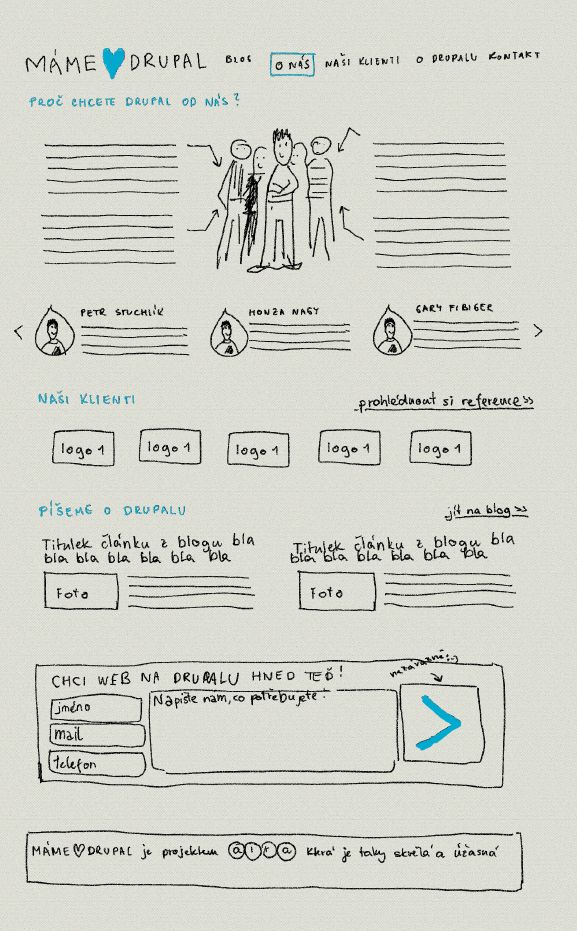 MÁME DRUPAL BLOG O NÁS NAŠI KLIENTI O DRUPALU KONTAKT
PROČ CHCETE DRUPAL OD NÁS?
PETR STUCHLÍK HONZA NAGY GARY FIBIGER
NAŠI KLIENTI prohlédnout si reference >>
logo 1 logo 1 logo 1 logo 1 logo 1
PÍŠEME O DRUPALU jít na blog >>
Titulek článku z blogu bla
bla bla bla bla bla bla
Titulek článku z blogu bla
bla bla bla bla bla bla
Foto Foto
nezávazně :-)
CHCI WEB NA DRUPALU HNED TEĎ!
jméno
mail
telefon
Napište nám, co potřebujete!
MÁME DRUPAL je projektem která je taky skvělá a úžasná